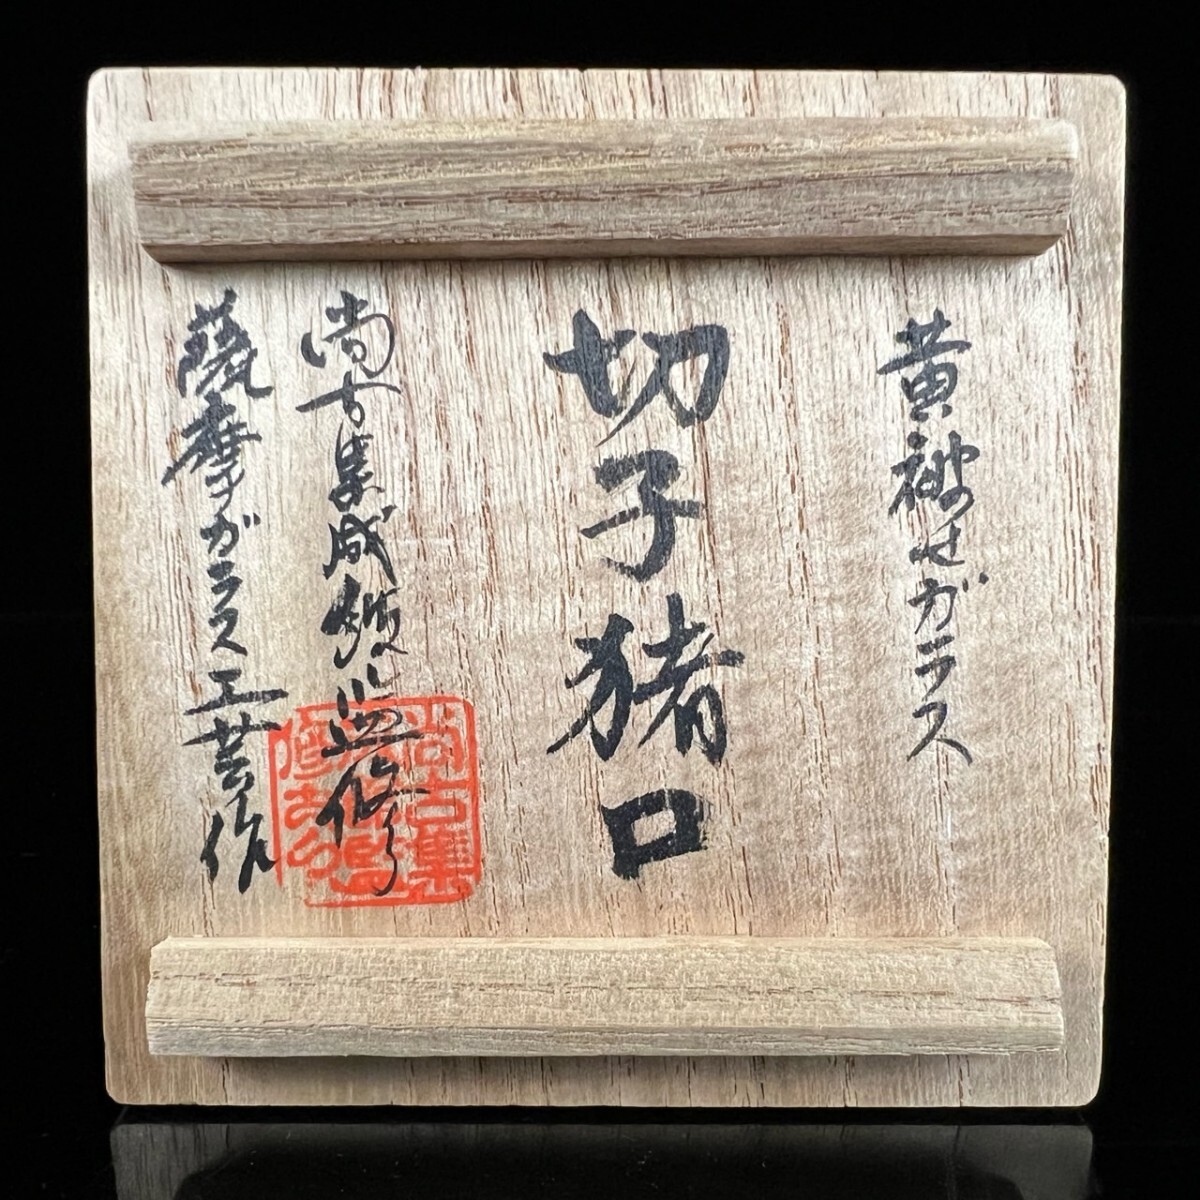 黄被せガラス
切子猪口
尚古集成館監修
薩摩ガラス工芸作
尚古集